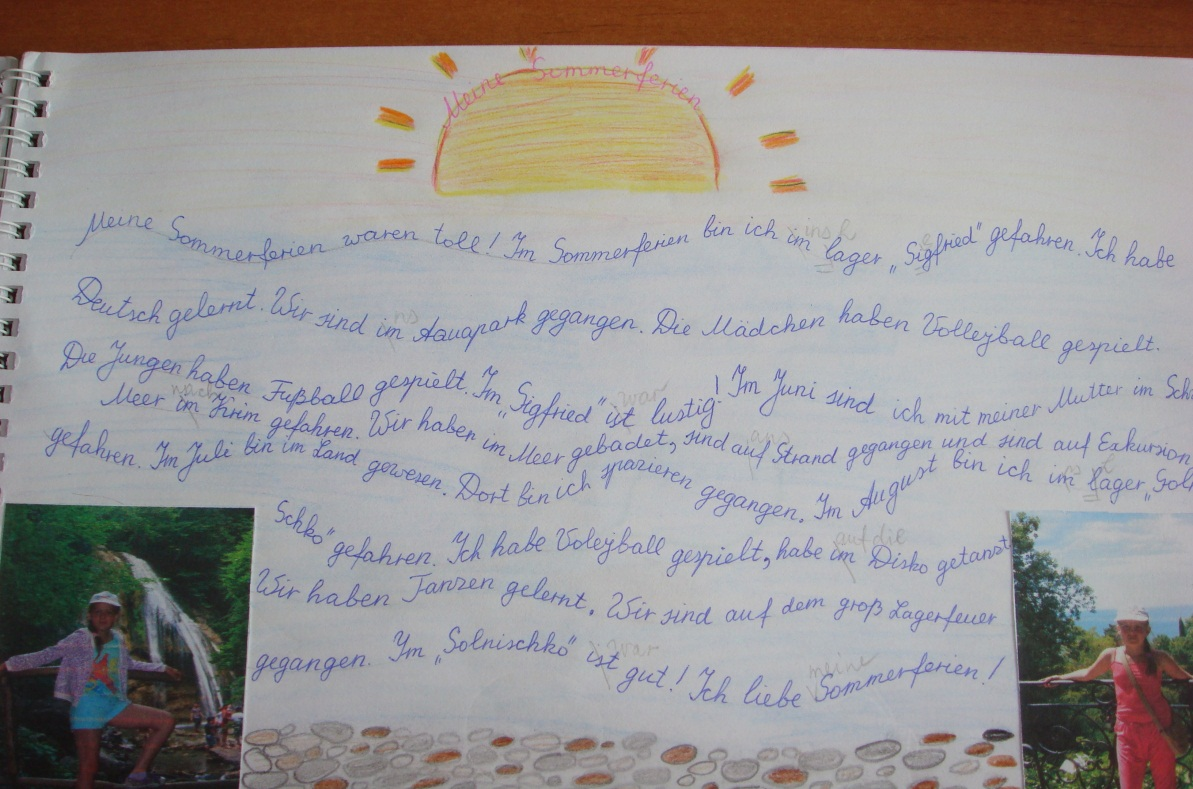 Meine Sommerferien
ins L
e
Meine Sommerferien waren toll! Im Sommerferien bin ich im lager „Sigfried“ gefahren. Ich habe
ns
Deutsch gelernt. Wir sind im Aquapark gegangen. Die Mädchen haben Volleyball gespielt.
war
Die Jungen haben Fußball gespielt. Im „Sigfried“ ist lustig! Im Juni sind ich mit meiner Mutter im Sch
nach
ans
Meer im Krim gefahren. Wir haben im Meer gebadet, sind auf Strand gegangen und sind auf Exkursion
gefahren. Im Juli bin im Land gewesen. Dort bin ich spazieren gegangen. Im August bin ich im lager „Soln
auf die
Schko“ gefahren. Ich habe Voleyball gespielt, habe im Disko getanst
Wir haben Tanzen gelernt. Wir sind auf dem groß Lagerfeuer
war
meine
gegangen. Im „Solnischko“ ist gut! Ich liebe Sommerferien!